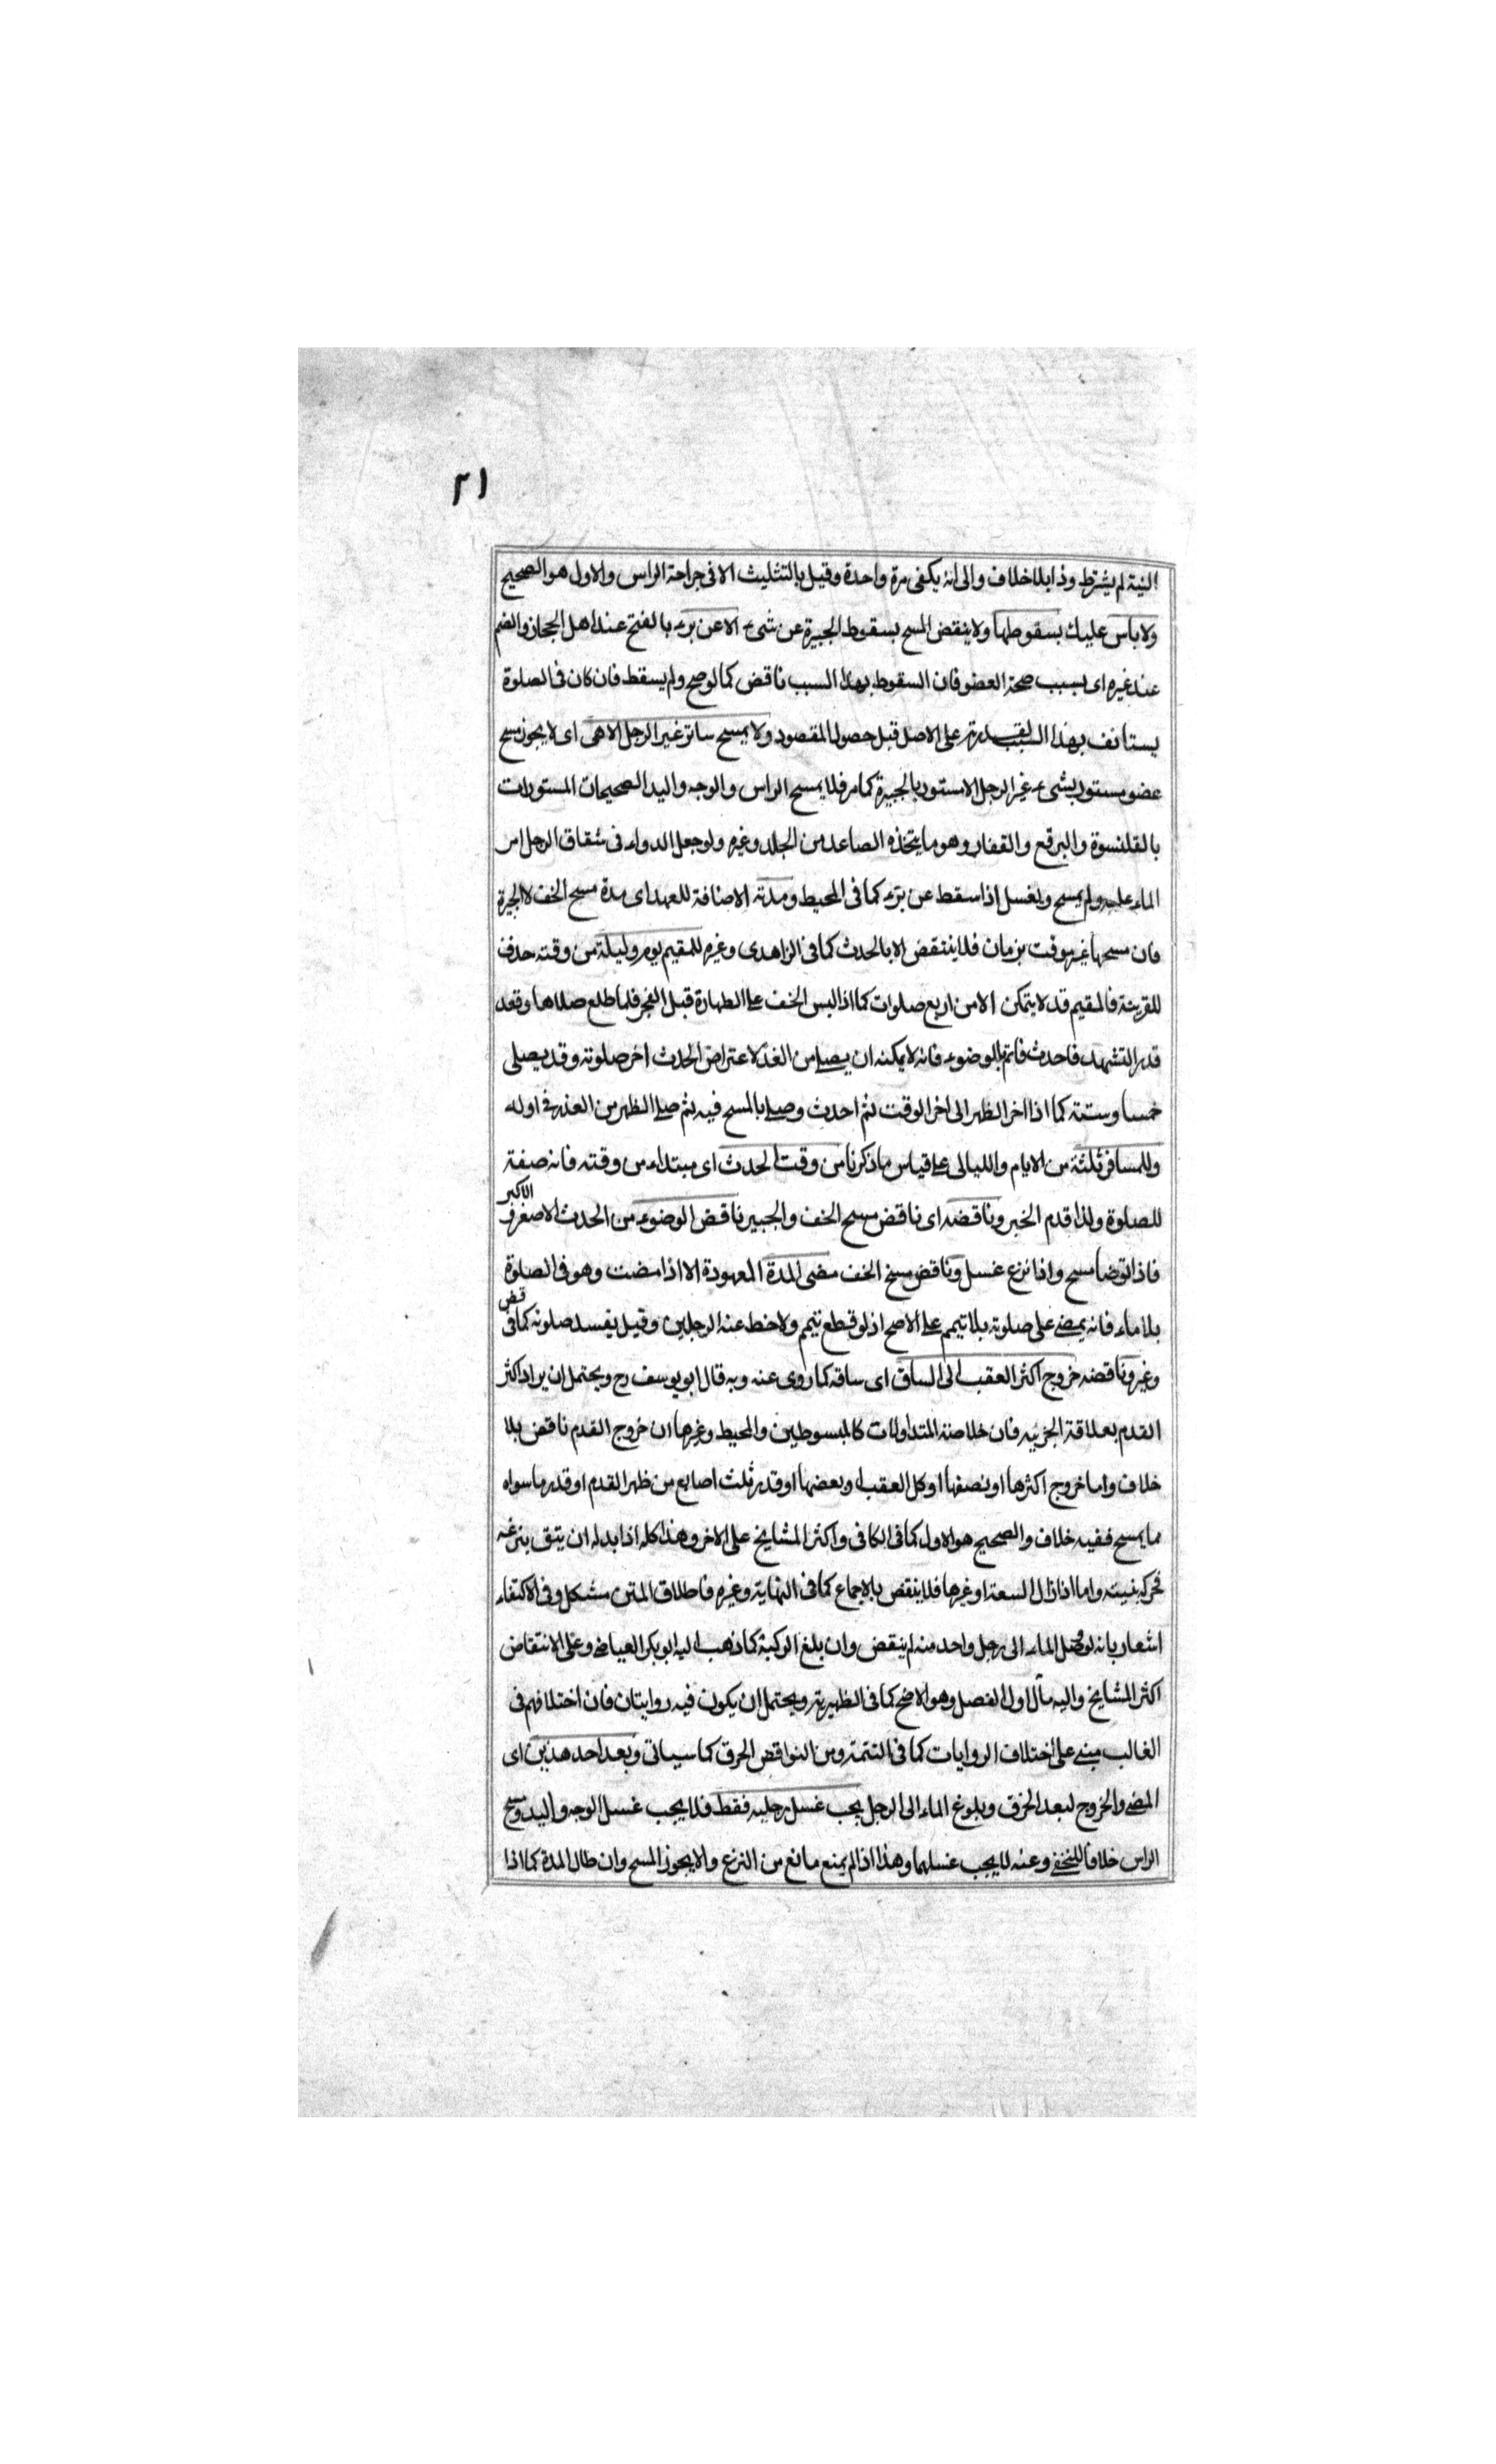 ٢١
النية لم يشترط وذا بلا خلاف والى انه يكفى مرة واحدة وقيل بالتثليث الا فى جراحة الراس والاول هو الصحيح
ولا باس عليك بسقوطها ولا ينقض المسح بسقوط الجبيرة عن شىء الا عن برء بالفتح عند اهل الحجاز والضم
عند غيره اى بسبب صحة العضو فان السقوط بهذا السبب ناقض كما لو صح ولم يسقط فان كان فى الصلوة
يستانف بهذا السبب لقدرته على الاصل قبل حصول المقصود ولا يمسح ساتر غير الرجل الا هى اى لا يجوز مسح
عضو مستور بشىء غير الرجل الا مستور بالجبيرة كما مر فلا يمسح الراس والوجه واليد الصحيحات المستورات
بالقلنسوة والبرقع والقفاز وهو ما يتخذه الصاعد من الجلد وغيره ولو جعل الدواء فى شقاق الرجل امر
الماء عليه ولم يمسح ويغسل اذا سقط عن برء كما فى المحيط ومدته الاضافة للعهد اى مدة مسح الخف لا الجبيرة
فان مسحها غير موقت بزمان فلا ينتقض الا بالحدث كما فى الزاهدى وغيره للمقيم يوم وليلة من وقته حذف
للقرينة فالمقيم قد لا يتمكن الا من اربع صلوات كما اذا لبس الخف على الطهارة قبل الفجر فلما طلع صلاها وقعد
قدر التشهد فاحدث فاتم بالوضوء فانه لا يمكنه ان يصلى من الغد لاعتراض الحدث اخر صلوته وقد يصلى
خمسا وستة كما اذا اخر الظهر الى اخر الوقت ثم احدث وصلى بالمسح فيه ثم صلى الظهر من الغد فى اوله
وللمسافر ثلثة من الايام والليالى على قياس ما ذكرنا من وقت الحدث اى مبتداء من وقته فانه صفة
للصلوة ولذا قدم الخبر وناقضه اى ناقض مسح الخف والجبيرة ناقض الوضوء من الحدث الاصغر و الاكبر
فاذا توضا مسح واذا نزع غسل وناقض مسح الخف مضى المدة المعهودة الا اذا مضت وهو فى الصلوة
بلا ماء فانه يمضى على صلوته بلا تيمم على الاصح اذ لو قطع تيمم ولا حظ عنه الرجلين وقيل يفسد صلوته كما فى قض
وغيره وناقضه خروج اكثر العقب الى الساق اى ساقه كما روى عنه وبه قال ابو يوسف رح ويحتمل ان يراد اكثر
القدم بعلاقة الجزئيه فان خلاصة المتداولات كالمبسوطين والمحيط وغيرها ان خروج القدم ناقض بلا
خلاف واما خروج اكثرها او نصفها او كل العقب او بعضها او قدر ثلث اصابع من ظهر القدم او قدر ما سواه
مما يمسح ففيه خلاف والصحيح هو الاول كما فى الكافى واكثر المشايخ على الاخر وهذا كله اذا بدا له ان ينزعه
فحركه بنيته واما اذا زال لسعة او غيرها فلا ينقض بالاجماع كما فى النهاية وغيره فاطلاق المتن مشكل وفى الاكتفاء
اشعار بانه لو وصل الماء الى رجل واحد منه لم ينقض وان بلغ الركبة كما ذهب اليه ابو بكر العياضى وعلى الانتقاض
اكثر المشايخ واليه مال اول الفصل وهو الاصح كما فى الظهيرية ويحتمل ان يكون فيه روايتان فان اختلافهم فى
الغالب مبنى على اختلاف الروايات كما فى التتمة ومن النواقض الخرق كما سياتى وبعد احد هذين اى
المضى والخروج لبعد الخرق وبلوغ الماء الى الرجل يجب غسل رجليه فقط فلا يجب غسل الوجه واليد ومسح
الراس خلافا للنخعى وعنه لا يجب غسلهما وهذا اذا لم يمنع مانع من النزع والا يجوز المسح وان طال المدة كما اذا